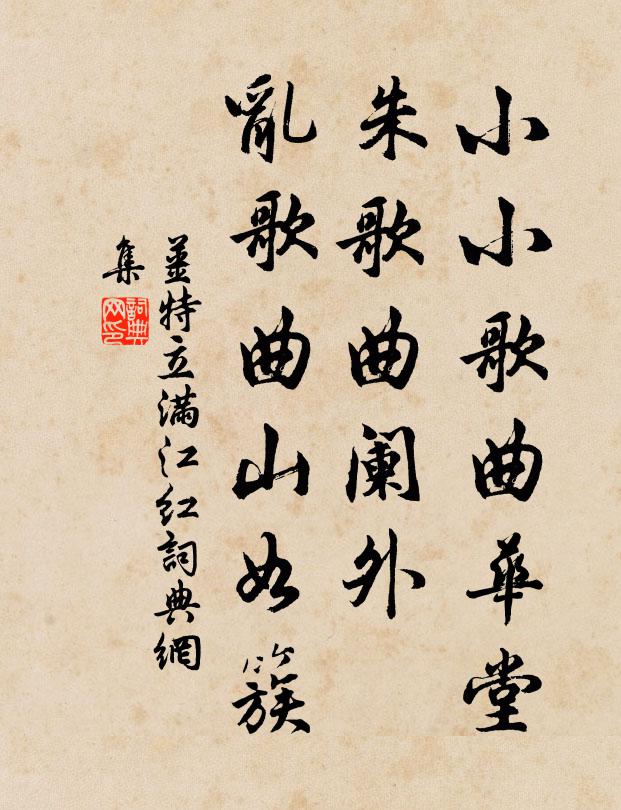 小小歌曲華堂
朱歌曲阑外
亂歌曲山如簇
薑特立满江红詞典網
集
詞典
网印